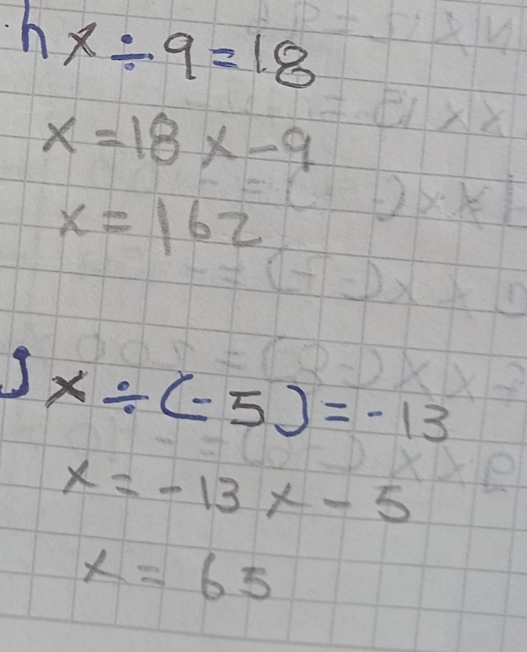 h x ÷ 9 = 18
x = 18 x - 9
x = 162
J x ÷ (- 5) = - 13
x = - 13 x - 5
x = 65